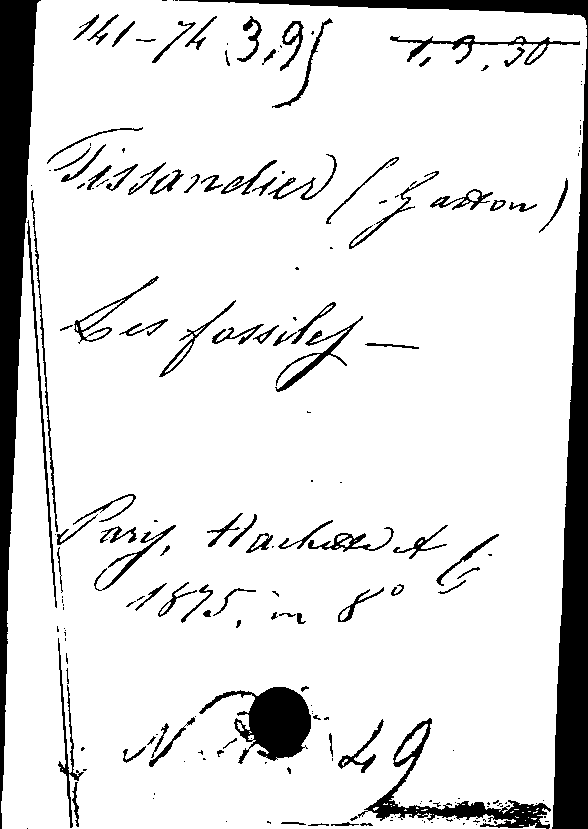 141-74 3,95 1.3.30
Tissandier (Gaston)
Les fossiles —
Paris, Hachette et Cie
1875, in 8°
N 49